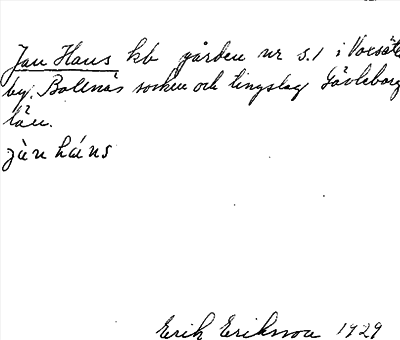 Jan Hans kb gården nr 5.1 i Voxsäte
by. Bollnäs socken och tingslag Gävleborg
län.
jàn háns
Erik Eriksson 1929